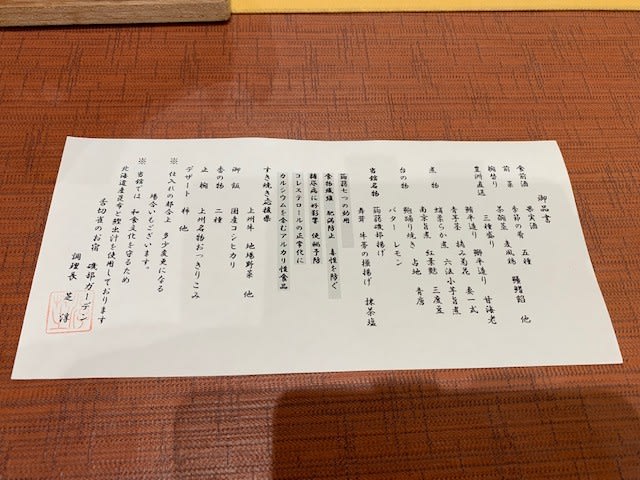 御品書
食前酒 果実酒
前菜 季節の肴 五種 他
椀替り 茶碗蒸 麦風鶏
豊洲直送 三種盛り 甘海老
鰤平造り 鰤平造り
青芋茎 摘み菊花 妻一式
煮物 蛸柔らか煮 六法小芋旨煮
南京旨煮 紅葉麩 三度豆
台の物 鮑踊り焼き 占地 青唐
バター レモン
当館名物 蒟蒻磯部揚げ
舞茸 牛蒡の掻揚げ 抹茶塩
蒟蒻七つの効用
食物繊維 肥満防止 毒性を防ぐ
糖尿病に好影響 便秘予防
コレステロールの正常化に
カルシウムを含むアルカリ性食品
すき焼き応援県
上州牛 地場野菜 他
御飯 国産コシヒカリ
香の物 二種
止椀 上州名物おっきりこみ
デザート 柿 他
※ 仕入れの都合上 多少変更になる
場合もございます。
※ 当館では 和食文化を守るため
北海道産昆布と鰹出汁を使用しております
舌切雀のお宿 磯部ガーデン
調理長 芝 淳